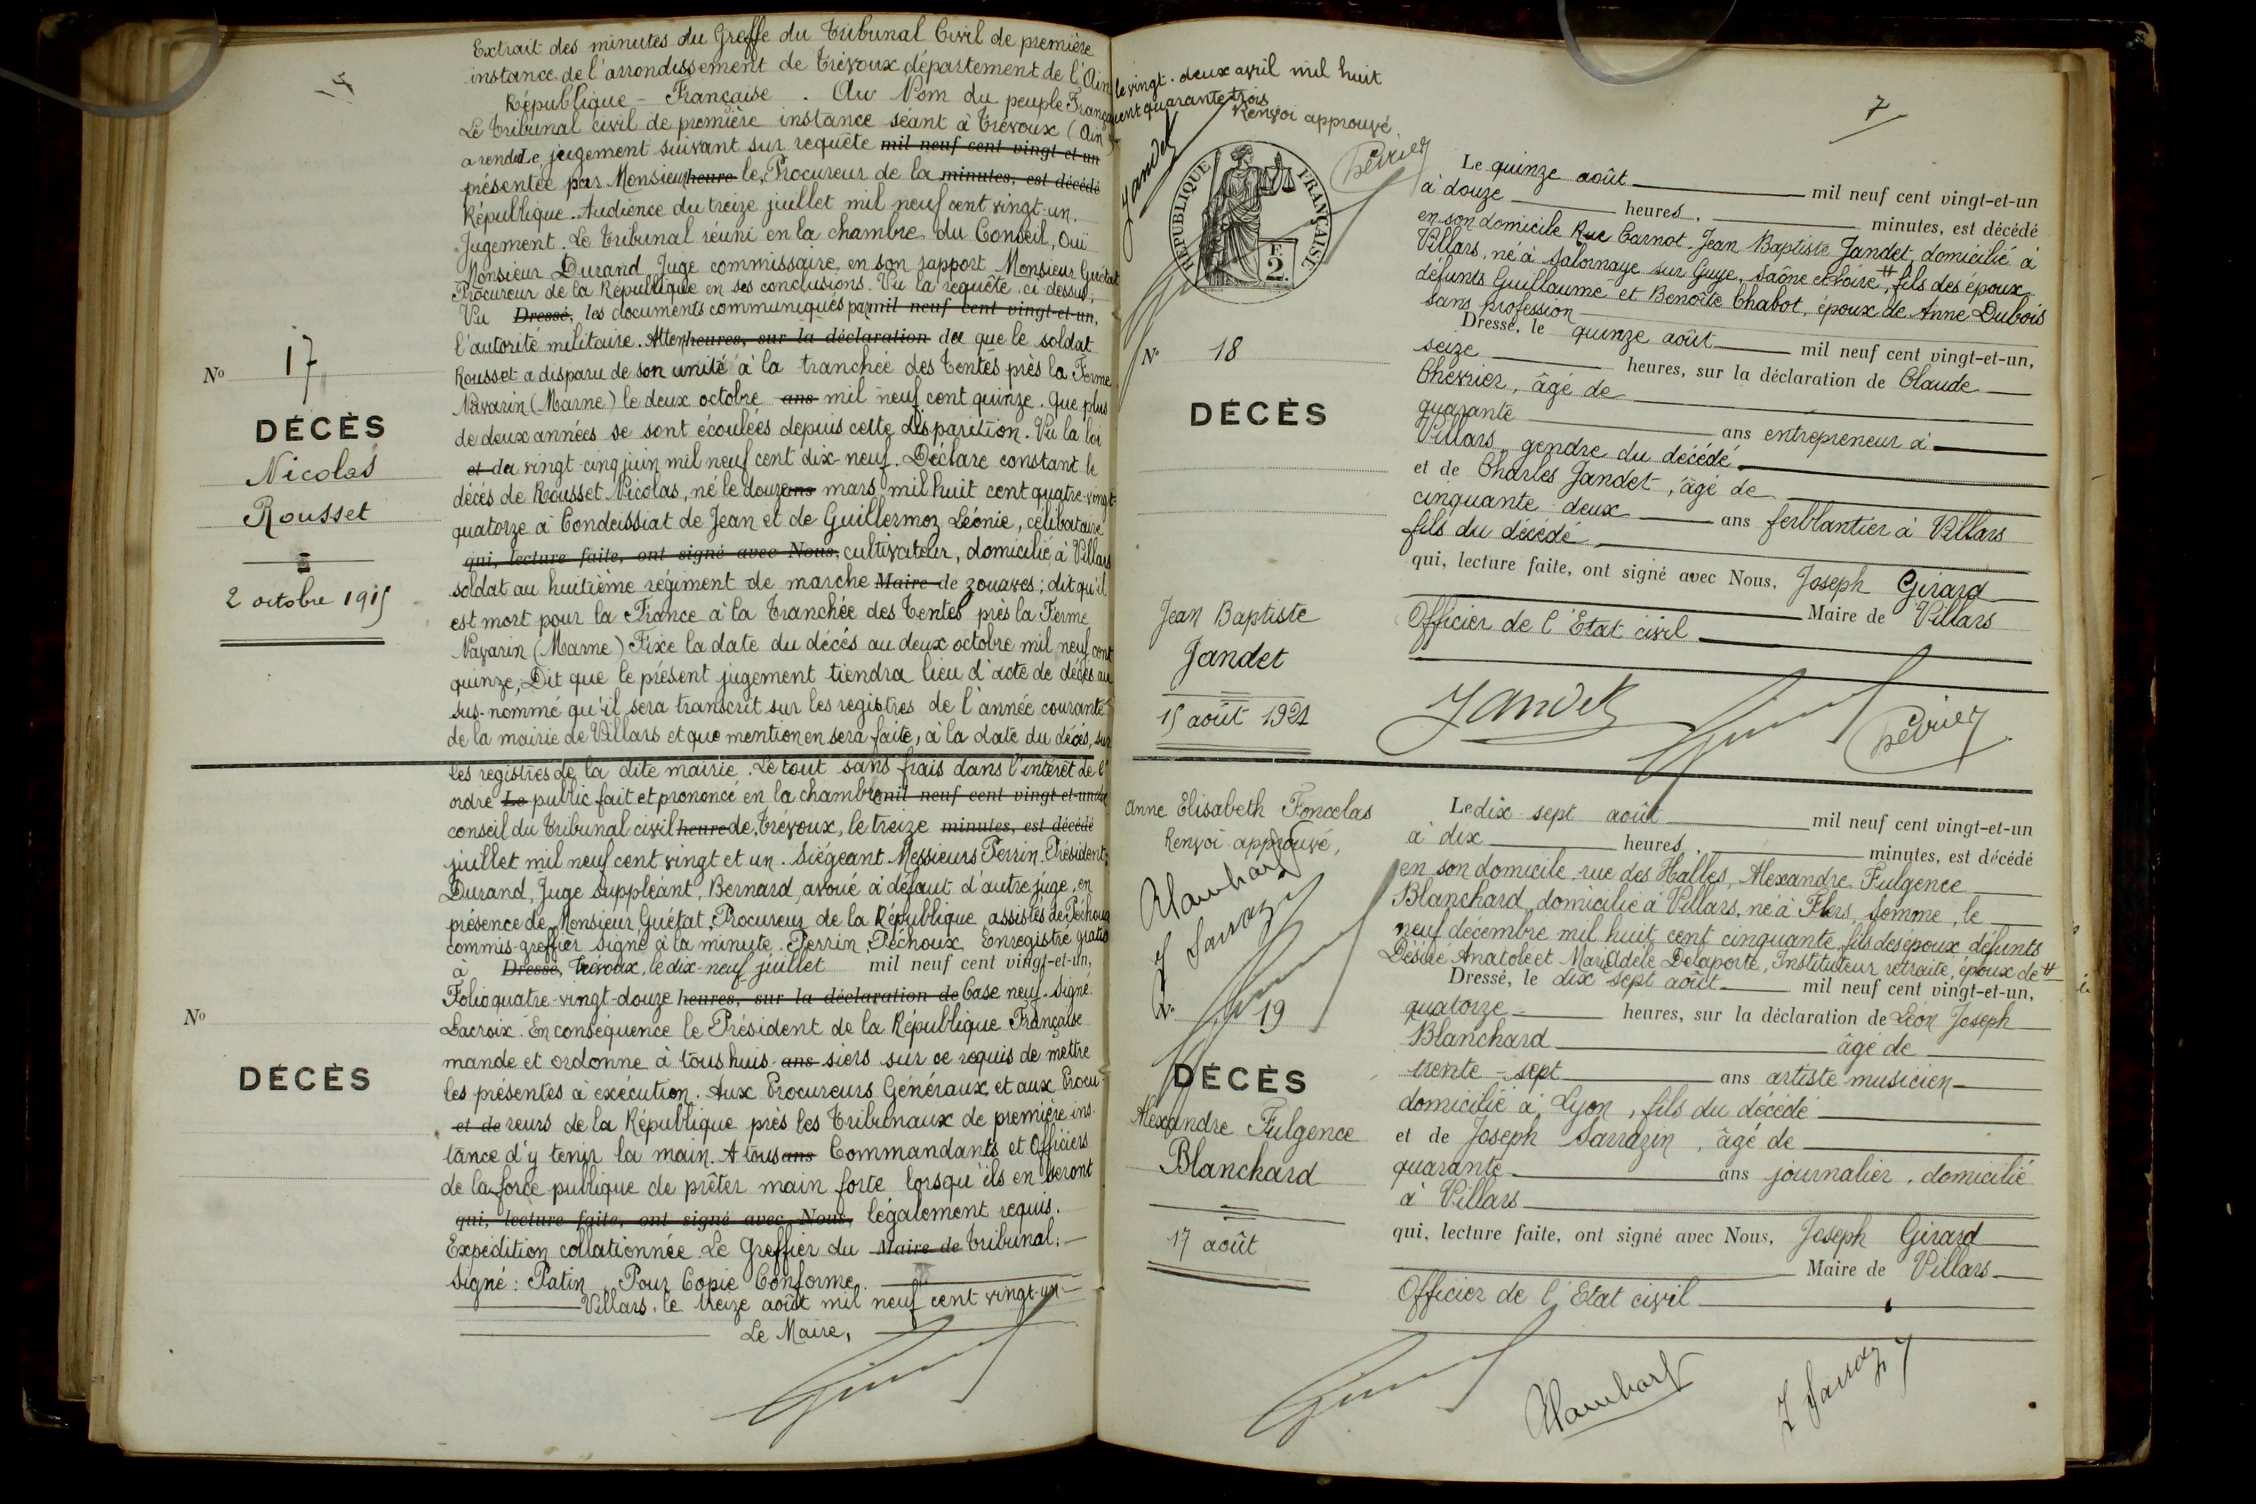 Extrait des minutes du Greffe du Tribunal Civil de première
instance de l'arrondissement de Trévoux département de l'Ain
République - Française. Au Nom du peuple Français
Le Tribunal civil de première instance séant à Trévoux (Ain)
a rendu Le jugement suivant sur requête mil neuf cent vingt-et-un
présentée par Monsieur heure le Procureur de la minutes, est décédé
République. Audience du treize juillet mil neuf cent vingt-un.
Jugement. Le Tribunal réuni en la chambre du Conseil, Ouï
Monsieur Durand Juge commissaire en son rapport Monsieur Guétat
Procureur de la République en ses conclusions. Vu la requête ci-dessus,
Vu Dressé, les documents communiqués par mil neuf cent vingt-et-un,
l'autorité militaire. Atten heures, sur la déclaration de du que le soldat
Rousset a disparu de son unité à la tranchée des Tentes près la Ferme
Navarin (Marne) le deux octobre ans mil neuf cent quinze. Que plus
de deux années se sont écoulées depuis cette disparition. Vu la loi
et de du vingt-cinq juin mil neuf cent dix-neuf. Déclare constant le
décès de Rousset Nicolas, né le douze ans mars mil huit cent quatre-vingt-
quatorze à Condeissiat de Jean et de Guillermoz Léonie, célibataire
qui, lecture faite, ont signé avec Nous, cultivateur, domicilié à Villars
soldat au huitième régiment de marche Maire de de zouaves; dit qu'il
est mort pour la France à la Tranchée des Tentes près la Ferme
Navarin (Marne) Fixe la date du décès au deux octobre mil neuf cent
quinze, Dit que le présent jugement tiendra lieu d'acte de décès au
sus-nommé qu'il sera transcrit sur les registres de l'année courante
de la mairie de Villars et que mention en sera faite, à la date du décès, sur
les registres de la dite mairie. Le tout sans frais dans l'intérêt de l'
ordre Le public fait et prononcé en la chambre mil neuf cent vingt-et-un du
conseil du Tribunal civil heure de Trévoux, le treize minutes, est décédé
juillet mil neuf cent vingt et un. Siégeant Messieurs Perrin Président,
Durand, Juge suppléant, Bernard, avoué à défaut d'autre juge, en
présence de Monsieur Guétat, Procureur de la République assistés de Péchoux
commis-greffier Signé à la minute. Perrin Péchoux Enregistré gratis
à Dressé, Trévoux, le dix-neuf juillet mil neuf cent vingt-et-un,
Folio quatre-vingt-douze heures, sur la déclaration de Case neuf. Signé
Lacroix. En conséquence le Président de la République Française
mande et ordonne à tous huis- ans siers sur ce requis de mettre
les présentes à exécution. Aux Procureurs Généraux et aux Procu-
et de reurs de la République près les Tribunaux de première ins-
tance d'y tenir la main. A tous ans Commandants et Officiers
de la force publique de prêter main forte lorsqu'ils en seront
qui, lecture faite, ont signé avec Nous, légalement requis.
Expédition collationnée Le Greffier du Maire de Tribunal:
Signé: Patin. Pour Copie Conforme.
Villars, le treize août mil neuf cent vingt-un
Le Maire,
No 17
DÉCÈS
Nicolas
Rousset
2 octobre 1915
No
DÉCÈS
7
le vingt-deux avril mil huit
cent quarante trois
Renvoi approuvé
Jandet
RÉPUBLIQUE FRANÇAISE
2F.
No 18
DÉCÈS
Jean Baptiste
Jandet
15 août 1921
Le quinze août mil neuf cent vingt-et-un
à douze heures, minutes, est décédé
en son domicile Rue Carnot Jean Baptiste Jandet, domicilié à
Villars, né à Salornaye sur Guye, Saône et Loire, # fils des époux
défunts Guillaume et Benoîte Chabot, époux de Anne Dubois
sans profession
Dressé, le quinze août mil neuf cent vingt-et-un,
seize heures, sur la déclaration de Claude
Chevrier, âgé de
quarante ans entrepreneur à
Villars, gendre du décédé
et de Charles Jandet, âgé de
cinquante-deux ans ferblantier à Villars
fils du décédé
qui, lecture faite, ont signé avec Nous, Joseph Girard
Maire de Villars
Officier de l'Etat civil
Jandet
Anne Elisabeth Foncelas
Renvoi approuvé,
Blanchard
J Sarrazin
No 19
DÉCÈS
Alexandre Fulgence
Blanchard
17 août
Le dix sept août mil neuf cent vingt-et-un
à dix heures, minutes, est décédé
en son domicile rue des Halles, Alexandre Fulgence
Blanchard, domicilié à Villars, né à Flers, Somme, le
neuf décembre mil huit cent cinquante, fils des époux défunts
Désirée Anatole et Marie Adèle Delaporte, Instituteur retraité, époux de #
Dressé, le dix sept août mil neuf cent vingt-et-un,
quatorze heures, sur la déclaration de Léon Joseph
Blanchard âgé de
trente-sept ans artiste musicien
domicilié à Lyon, fils du décédé
et de Joseph Sarrazin, âgé de
quarante ans journalier, domicilié
à Villars
qui, lecture faite, ont signé avec Nous, Joseph Girard
Maire de Villars
Officier de l'Etat civil
Blanchard
J Sarrazin